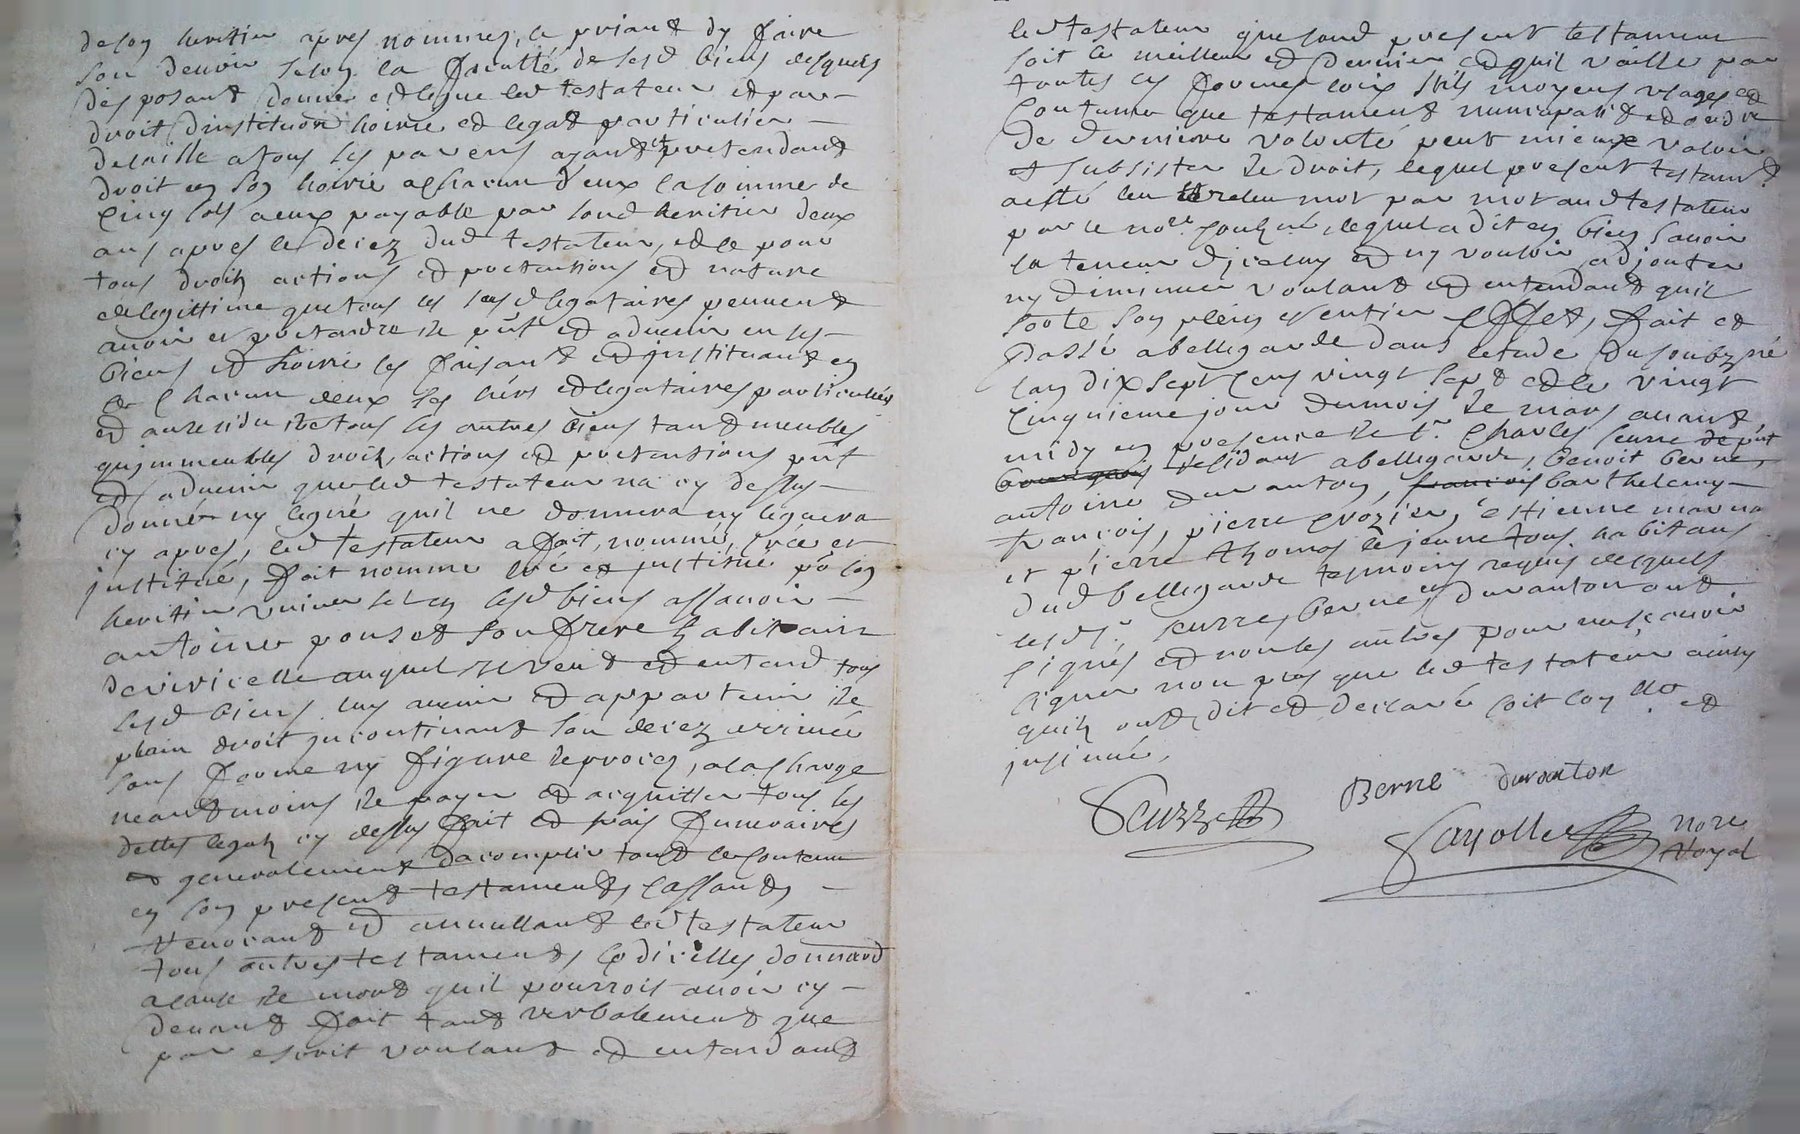 de son heritier apres nommez, le priant dy faire
son devoir selon la faculté de sesd biens desquels
disposant donne et legue led testateur et par
droit dinstitution hoirie et legat particulier
delaisse a tous les parens ayant et pretendant
droit en son hoirie a chacun deux la somme de
cinq sols a eux payable par sond heritier deux
ans apres le decez dud testateur, et ce pour
tous droitz actions et pretentions et nature
de legittime que tous les susd legataires peuvent
avoir et pretendre de pnt et advenir en ses
biens et hoirie les faisant et instituant en
ce chacun deux ses hers et legataires particuliers
et au residu de tous les autres biens tant meubles
quimmeubles droitz actions et pretentions pnt
et advenir que led testateur na cy dessus
donné ny legué quil ne donnera ny leguera
cy apres, led testateur a fait, nommé, créé et
institué, fait nomme créé et institue po son
heritier universel en sesd biens assavoir
antoine ponsot son frere habitant
de viricelle auquel il veut et entend tous
sesd biens luy avenir et appartenir de
plain droit incontinant son decez arrivée
sans forme ny figure de procez, a la charge
neantmoins de payer et acquitter tous les
dettes legatz cy dessus fait et frais funeraires
et generalement dacomplir tout le contenu
en son present testament, cassant,
revocant et annullant led testateur
tous autres testaments, codicelles, donnaõ
a cause de mort quil pourroit avoir cy
devant fait tant verbalement que
par escrit voulant et entendant
led testateur que sond present testament
soit le meilleur et dernier et quil vaille par
toutes les formes loix stils moyens usages et
coutumes que testament nuncupatif et ordre
de derniere volonté peut mieux valoir
et subsister de droit, lequel present testamt
a esté leu et releu mot par mot aud testateur
par le nore soubzné, lequel a dit en bien savoir
la teneur diceluy et ny vouloir adjouter
ny diminuer voulant et entendant quil
sorte son plein et entier effet, fait et
passé a bellegarde dans letude du soubzné
lan dix sept cens vingt sept et le vingt
cinquieme jour du mois de mars avant
midy en presence de sr. Charles seurre de pnt
bourgeois residant a bellegarde, benoit berne,
antoine duranton, francois barthelemy
françois, pierre crozier, estienne
et pierre thomas le jeune tous habitans
dud bellegarde tesmoins requis desquels
lesd sr. seurre, berne et duranton ont
signés et non les autres pour ne scavoir
signer non plus que led testateur ainsy
quilz ont dit et declaré soit con llé et
insinué,
Seurre Berne duranton
Fayolle nore
Royal